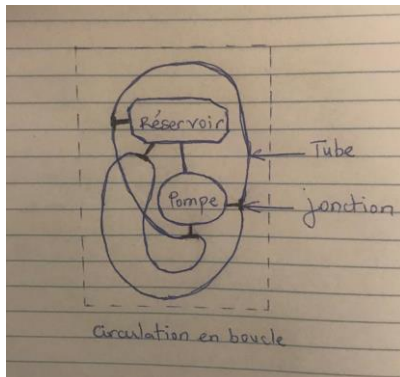 Réservoir
Tube
Pompe
jonction
Circulation en boucle